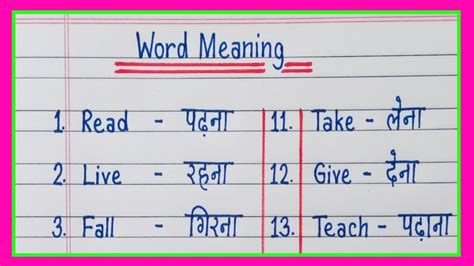 Word Meaning
1. Read - पढ़ना
2. Live - रहना
3. Fall - गिरना
11. Take - लेना
12. Give - देना
13. Teach - पढ़ाना